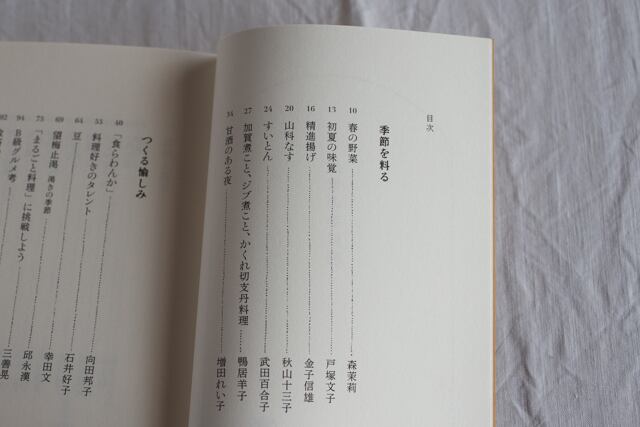 目次
季節を料る
10 春の野菜 森茉莉
13 初夏の味覚 戸塚文子
16 精進揚げ 金子信雄
20 山科なす 秋山十三子
24 すいとん 武田百合子
27 加賀煮こと、ジブ煮こと、かくれ切支丹料理 鴨居羊子
34 甘酒のある夜 増田れい子
つくる愉しみ
40 「食らわんか」 向田邦子
53 料理好きのタレント 石井好子
64 豆 幸田文
69 望梅止渇 渇きの季節 邱永漢
73 「まるごと料理」に挑戦しよう
94 B級グルメ考 三善晃